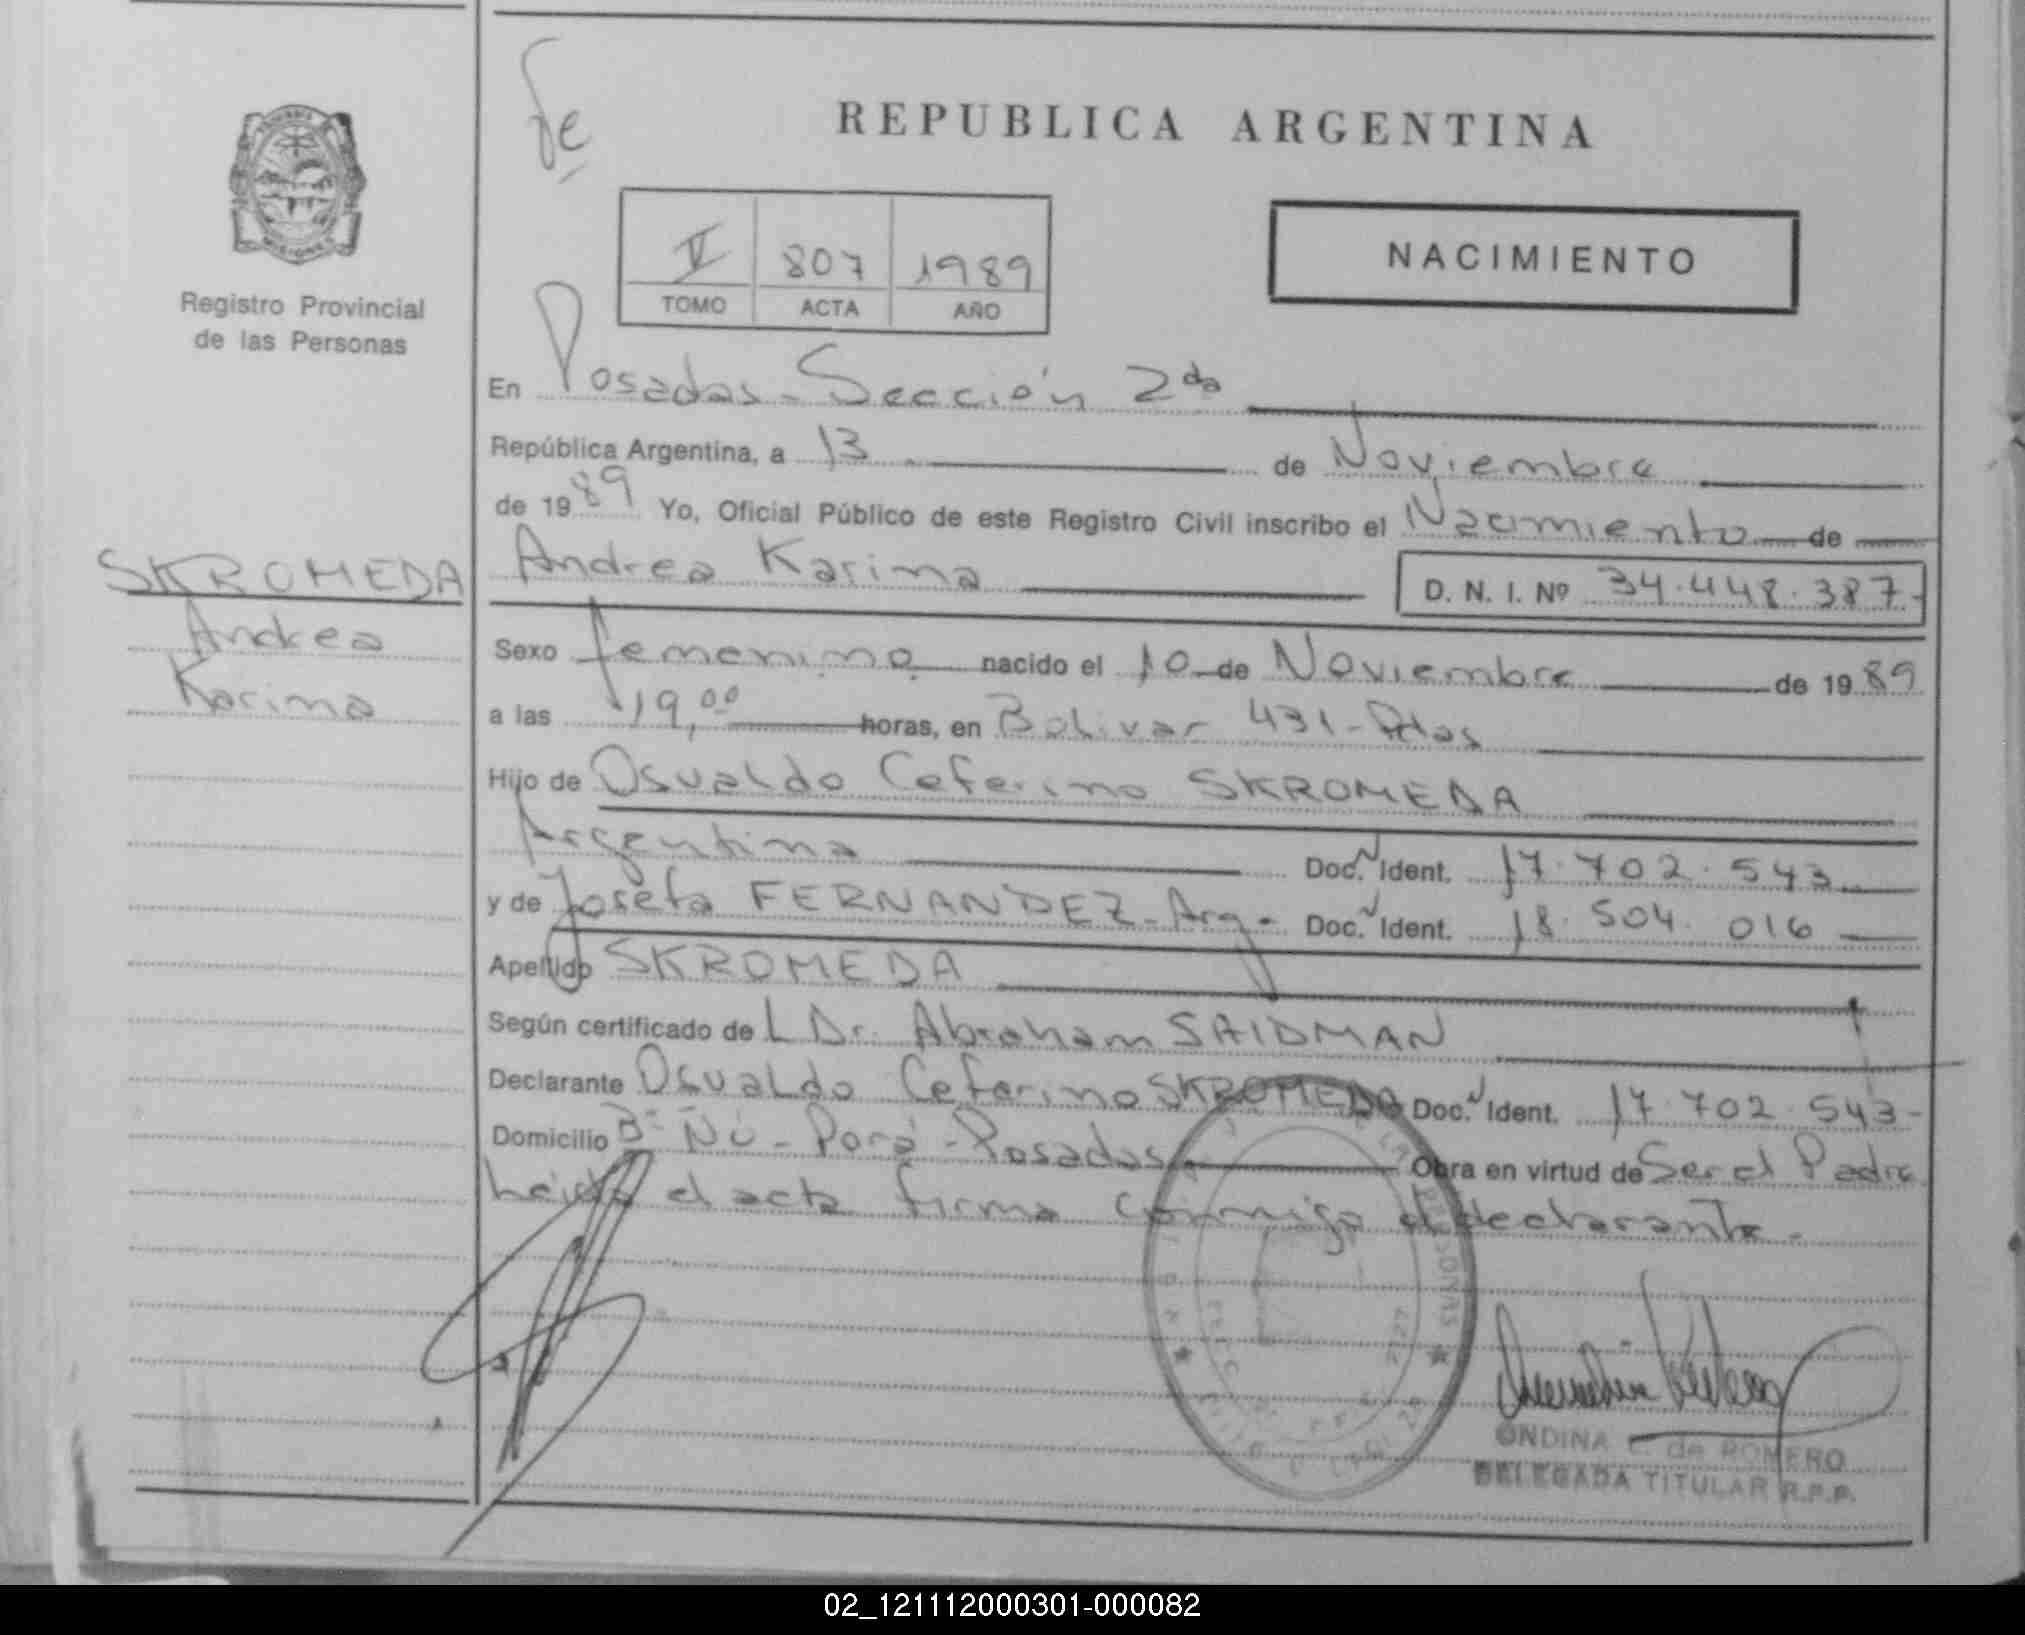 REPUBLICA ARGENTINA
V 807 1989
TOMO ACTA AÑO
NACIMIENTO
Registro Provincial
de las Personas
En Posadas - Sección 2da
República Argentina, a 13 de Noviembre
de 1989 Yo, Oficial Público de este Registro Civil inscribo el Nacimiento de
SKROMEDA
Andrea
Karina
Andrea Karina D. N. I. Nº 34.448.387-
Sexo femenino nacido el 10 de Noviembre de 1989
a las 19,00 horas, en Bolivar 431 - Pdas
Hijo de Osvaldo Ceferino SKROMEDA
Argentina Doc. Ident. 17.702.543
y de Josefa FERNANDEZ - Arg. Doc. Ident. 18.504.016
Apellido SKROMEDA
Según certificado de L Dr. Abraham SAIDMAN
Declarante Osvaldo Ceferino SKROMEDA Doc. Ident. 17.702.543-
Domicilio Bº Ñú - Porá - Posadas Obra en virtud de Ser el Padre
Leída el acta firma conmigo el declarante.
ONDINA C. de ROMERO
DELEGADA TITULAR R.P.P.
02_121112000301-000082